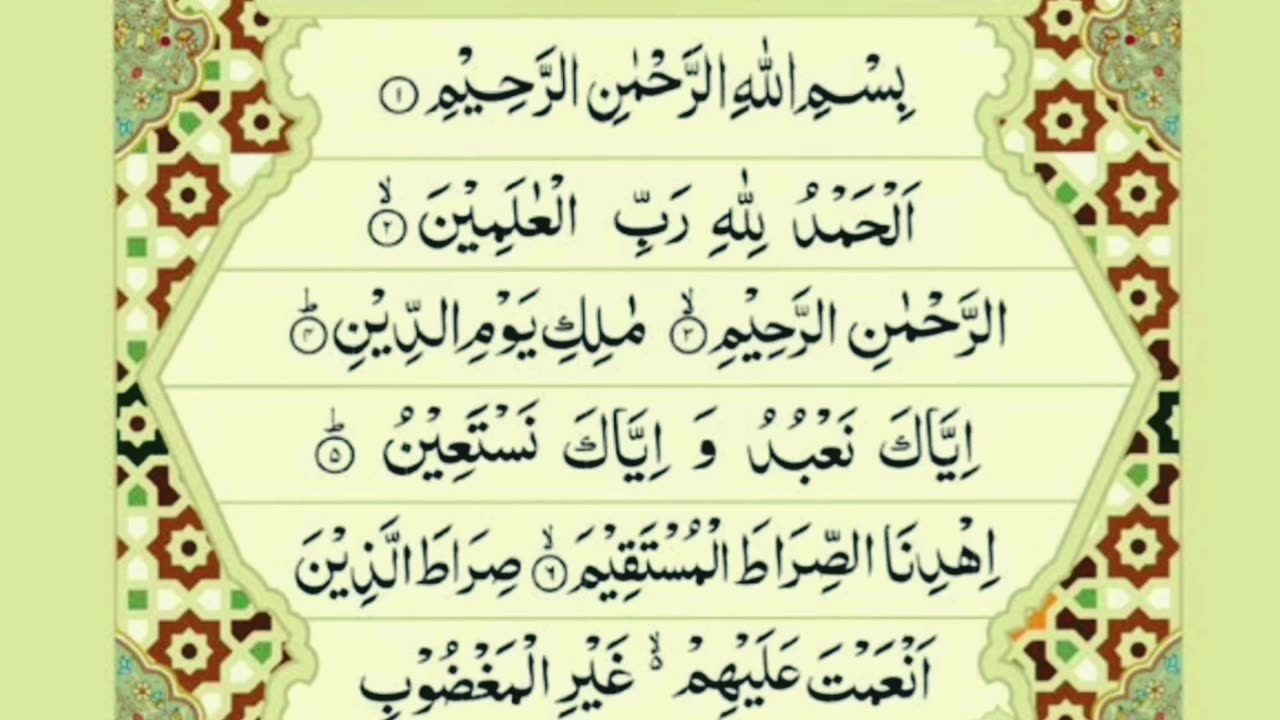 بِسْمِ اللّٰهِ الرَّحْمٰنِ الرَّحِيْمِ ۝۱
اَلْحَمْدُ لِلّٰهِ رَبِّ الْعٰلَمِيْنَ ۝۲ۙ
الرَّحْمٰنِ الرَّحِيْمِ ۝۳ۙ مٰلِكِ يَوْمِ الدِّيْنِ ۝۴ؕ
اِيَّاكَ نَعْبُدُ وَ اِيَّاكَ نَسْتَعِيْنُ ۝۵ؕ
اِهْدِنَا الصِّرَاطَ الْمُسْتَقِيْمَ ۝۶ۙ صِرَاطَ الَّذِيْنَ
اَنْعَمْتَ عَلَيْهِمْ ۙ۬ غَيْرِ الْمَغْضُوْبِ